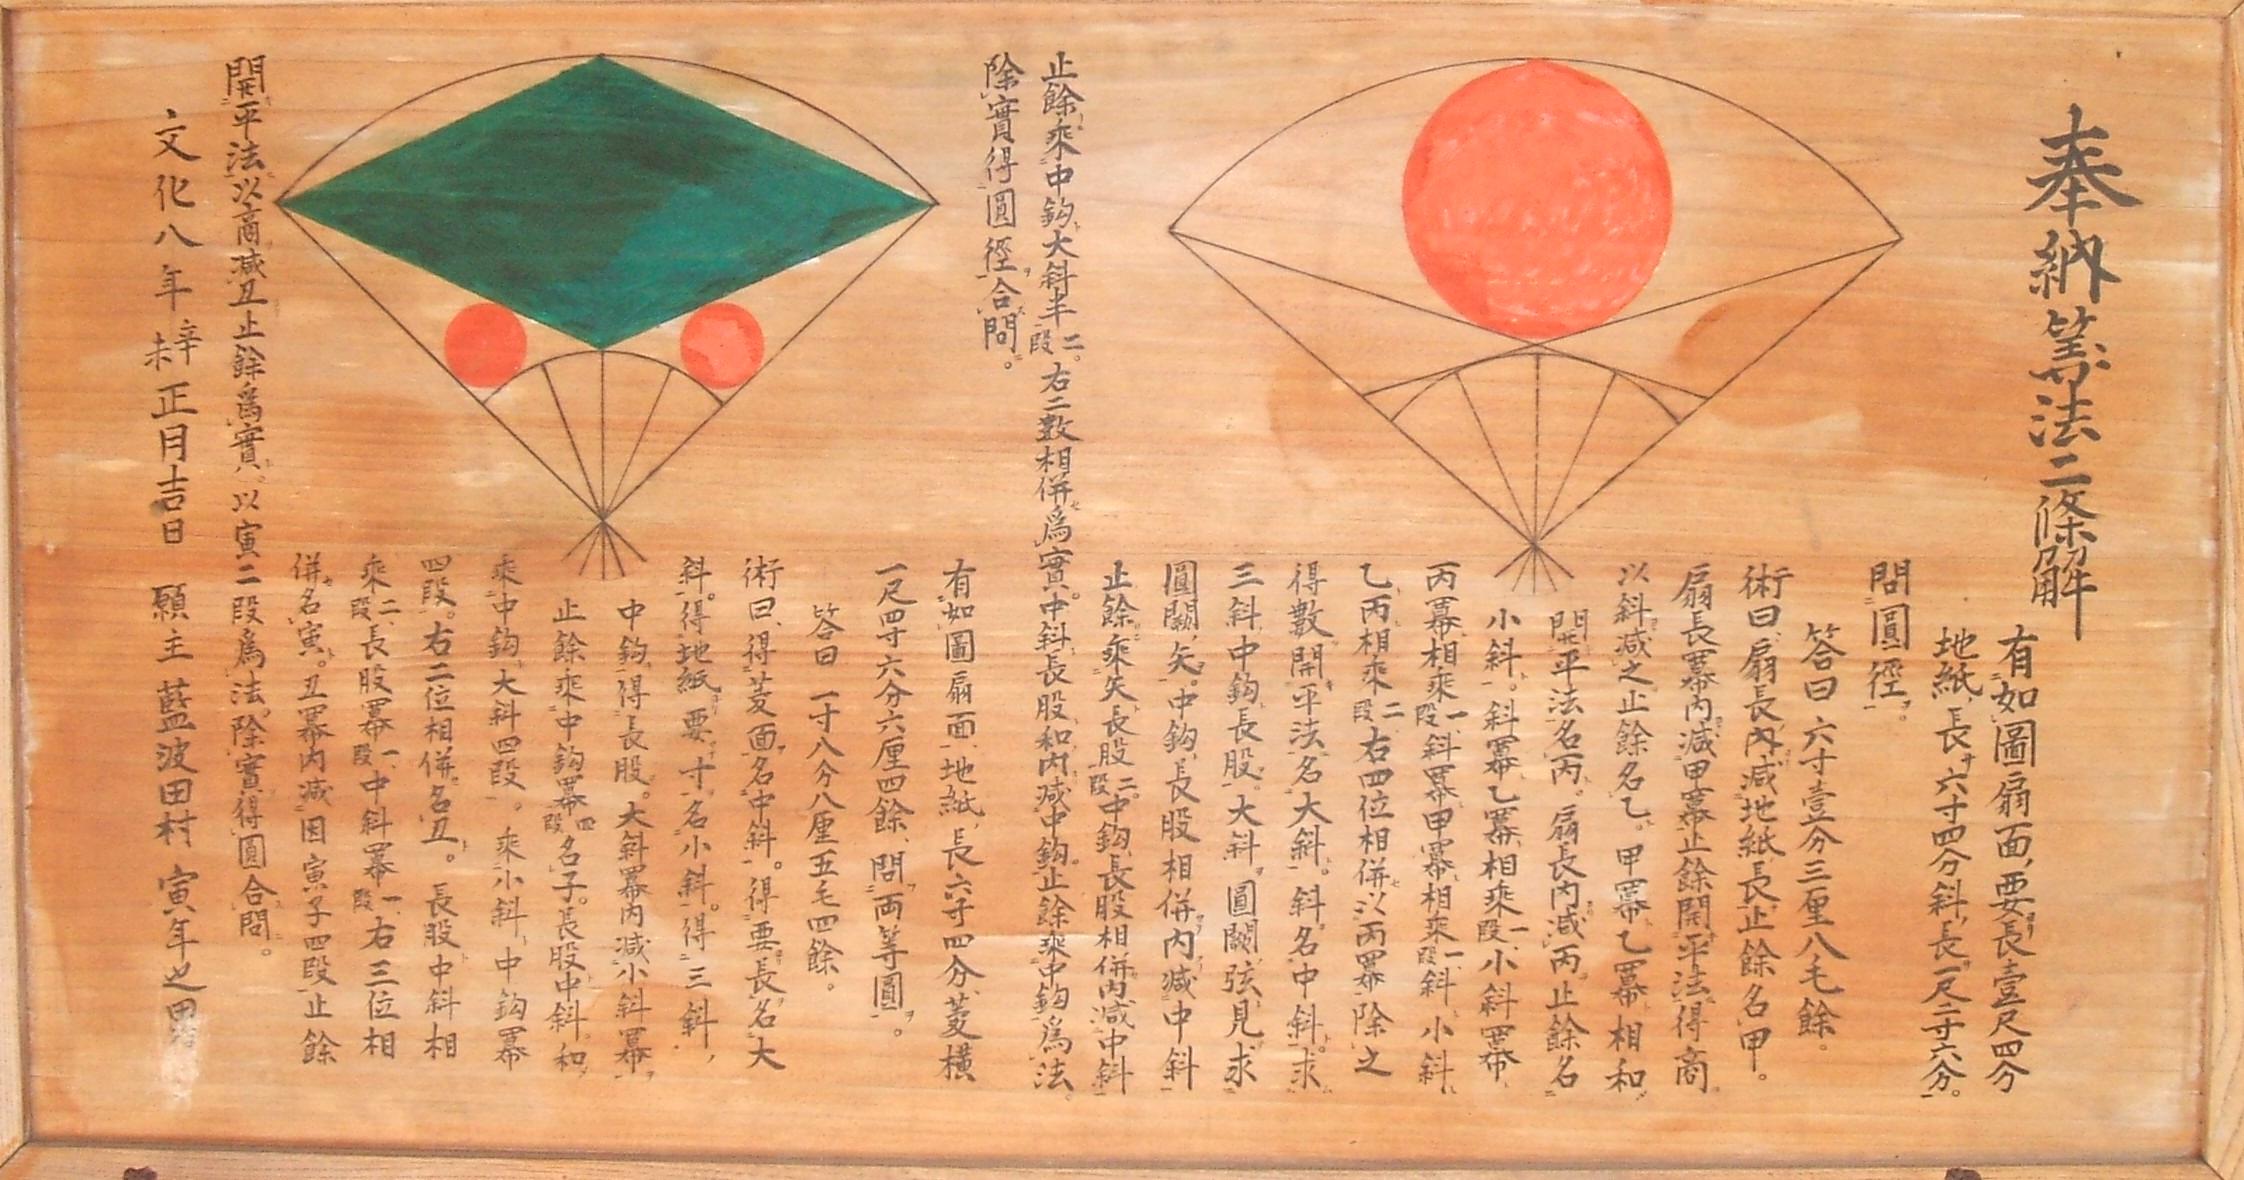 奉納筭法二條解
有如圖扇面要長壹尺四分
地紙長六寸四分斜長一尺二寸六分
問圓徑
答曰六寸壹分三厘八毛餘
術曰扇長内減地紙長止餘名甲
扇長冪内減甲冪止餘開平法得商
以斜減之止餘名乙甲冪乙冪相和
開平法名丙扇長内減丙止餘名
小斜斜冪乙冪相乘一段小斜冪
丙冪相乘一段斜冪甲冪相乘一段斜小斜
乙丙相乘二段右四位相併以丙冪除之
得數開平法名大斜斜名中斜求
三斜中鈎長股大斜圓闕弦見求
圓闕矢中鈎長股相併内減中斜
止餘乘矢長股二段中鈎長股相併内減中斜
止餘乘中鈎大斜半二段右二數相併爲實中斜長股和内減中鈎止餘乘中鈎爲法
除實得圓徑合問
有如圖扇面地紙長六寸四分菱横
一尺四寸六分六厘四餘問両等圓
答曰一寸八分八厘五毛四餘
術曰得菱面名中斜得要長名大
斜得地紙要寸名小斜得三斜
中鈎得長股大斜冪内減小斜冪
止餘乘中鈎冪四段名子長股中斜和
乘中鈎大斜四段乘小斜中鈎冪
四段右二位相併名丑長股中斜相
乘二段長股冪一段中斜冪一段右三位相
併名寅丑冪内減因寅子四段止餘
開平法以商減丑止餘爲實以寅二段爲法除實得圓合問
文化八年辛未正月吉日 願主 藍波田村 寅年之男